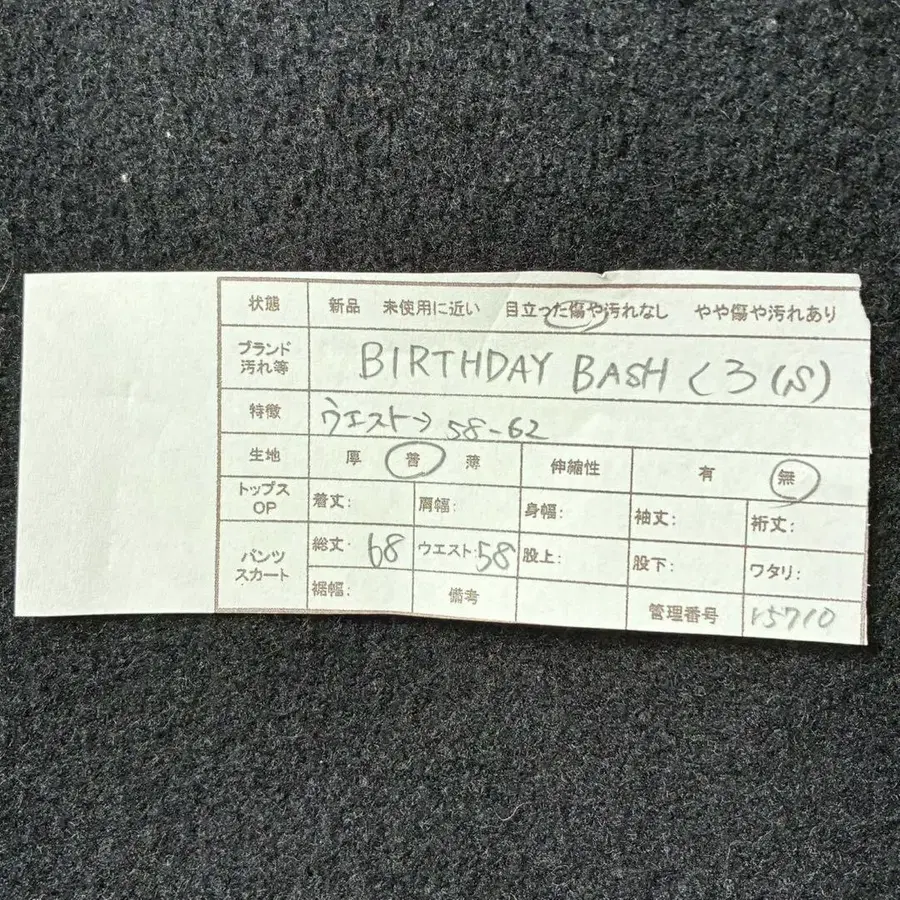 状態 新品 未使用に近い 目立った傷や汚れなし やや傷や汚れあり
ブランド 汚れ等 BIRTHDAY BASH くろ(S)
特徴 ウエスト→58-62
生地 厚 普 薄 伸縮性 有 無
トップス OP 着丈: 肩幅: 身幅: 袖丈: 裄丈:
パンツ スカート 総丈: 68 ウエスト: 58 股上: 股下: ワタリ:
裾幅: 備考 管理番号 r5710